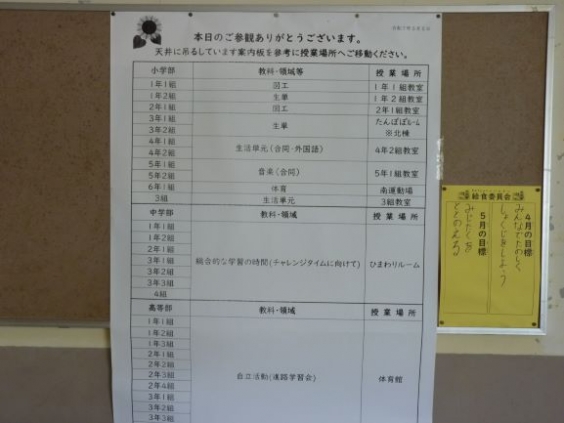 本日のご参観ありがとうございます。
天井に吊るしています案内板を参考に授業場所へご移動ください。
小学部 教科・領域等 授業場所
1年1組 図工 1年1組教室
1年2組 生単 1年2組教室
2年1組 図工 2年1組教室
3年1組
3年2組 生単 たんぽぽルーム
※北棟
4年1組
4年2組 生活単元(合同・外国語) 4年2組教室
5年1組
5年2組 音楽(合同) 5年1組教室
6年1組 体育 南運動場
3組 生活単元 3組教室
中学部 教科・領域 授業場所
1年1組
1年2組
2年1組
3年1組 総合的な学習の時間(チャレンジタイムに向けて) ひまわりルーム
3年2組
3年3組
4組
高等部 教科・領域 授業場所
1年1組
1年2組
1年3組
2年1組
2年2組
2年3組 自立活動(進路学習会) 体育館
2年4組
3年1組
3年2組
3年3組
給食委員会
4月の目標
みんなでたのしく
しょくじをしよう
5月の目標
みじたくを
ととのえる